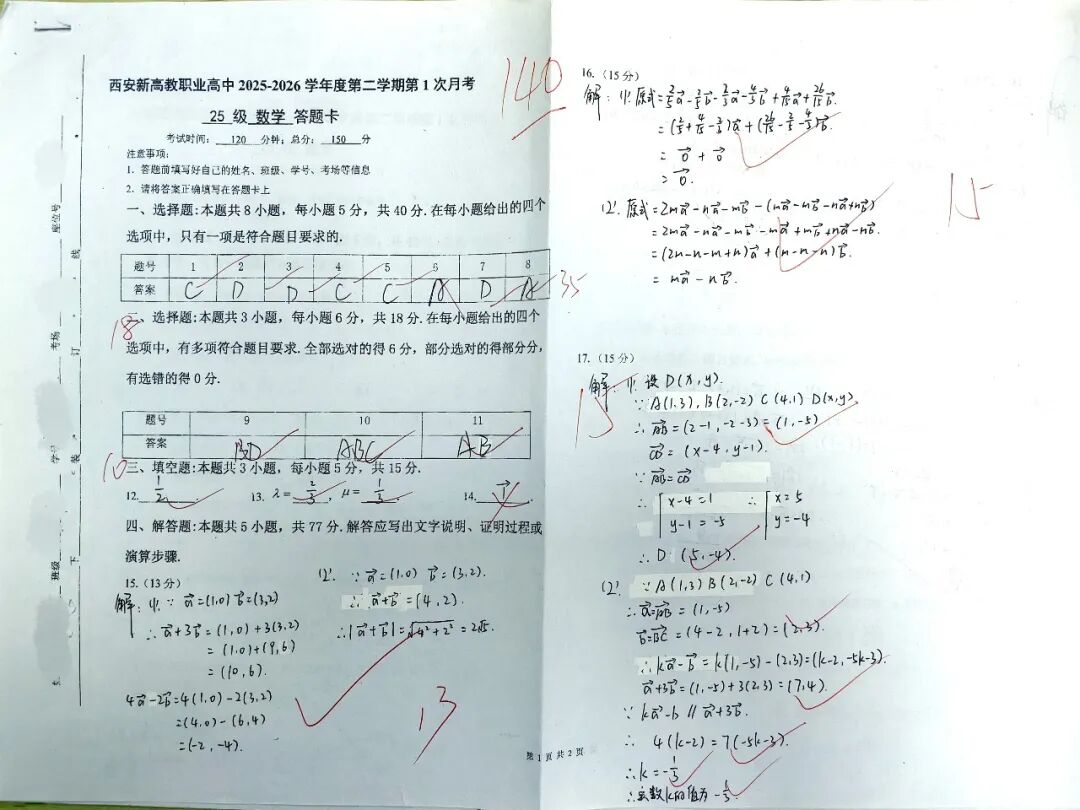 西安新高教职业高中 2025-2026 学年度第二学期第 1 次月考
25 级 数学 答题卡
140
考试时间: 120 分钟; 总分: 150 分
注意事项:
1. 答题前填写好自己的姓名、班级、学号、考场等信息
2. 请将答案正确填写在答题卡上
一、选择题:本题共 8 小题, 每小题 5 分, 共 40 分.在每小题给出的四个
选项中, 只有一项是符合题目要求的.
题号 1 2 3 4 5 6 7 8
答案 C D D C C A D A
35
二、选择题:本题共 3 小题, 每小题 6 分, 共 18 分.在每小题给出的四个
18
选项中, 有多项符合题目要求.全部选对的得 6 分, 部分选对的得部分分,
有选错的得 0 分.
题号 9 10 11
答案 BD ABC AB
10
三、填空题:本题共 3 小题, 每小题 5 分, 共 15 分.
12. 1/2 13. λ= 2/3 , μ= 1/3 . 14.
四、解答题:本题共 5 小题, 共 77 分.解答应写出文字说明、证明过程或
演算步骤.
15. (13 分)
解: (1). ∵ a⃗=(1,0) b⃗=(3,2)
∴ a⃗+3b⃗=(1,0)+3(3,2)
=(1,0)+(9,6)
=(10,6).
4a⃗-2b⃗=4(1,0)-2(3,2)
=(4,0)-(6,4)
=(-2,-4).
(2). ∵ a⃗=(1,0) b⃗=(3,2).
∴ a⃗+b⃗=(4,2).
∴|a⃗+b⃗|=√(4²+2²)=2√5.
13
第 1 页 共 2 页
座位号
考场
学号
班级
线
订
装
下
16. (15 分)
解: (1). 原式=2/5a⃗-2/5b⃗-2/3a⃗-4/3b⃗+4/15a⃗+26/15b⃗.
=(2/5+4/15-2/3)a⃗+(26/15-2/5-4/3)b⃗.
=0⃗+0⃗
=0⃗.
(2). 原式=2ma⃗-na⃗-mb⃗-(ma⃗-mb⃗-na⃗+nb⃗)
=2ma⃗-na⃗-mb⃗-ma⃗+mb⃗+na⃗-nb⃗.
=(2m-n-m+n)a⃗+(m-m-n)b⃗.
=ma⃗-nb⃗.
15
17. (15 分)
解: (1). 设 D(x,y).
∵ A(1,3), B(2,-2) C(4,1) D(x,y)
∴ AB⃗=(2-1,-2-3)=(1,-5)
CD⃗=(x-4,y-1).
∵ AB⃗=CD⃗
∴ { x-4=1 ∴ { x=5
y-1=-5 y=-4
∴ D (5,-4).
(2). ∵ A(1,3) B(2,-2) C(4,1)
∴ a⃗=AB⃗=(1,-5)
b⃗=BC⃗=(4-2,1+2)=(2,3).
∴ka⃗-b⃗=k(1,-5)-(2,3)=(k-2,-5k-3).
a⃗+3b⃗=(1,-5)+3(2,3)=(7,4).
∵ ka⃗-b // a⃗+3b⃗.
∴ 4(k-2)=7(-5k-3).
∴k=-1/3
∴实数k的值为-1/3.
15